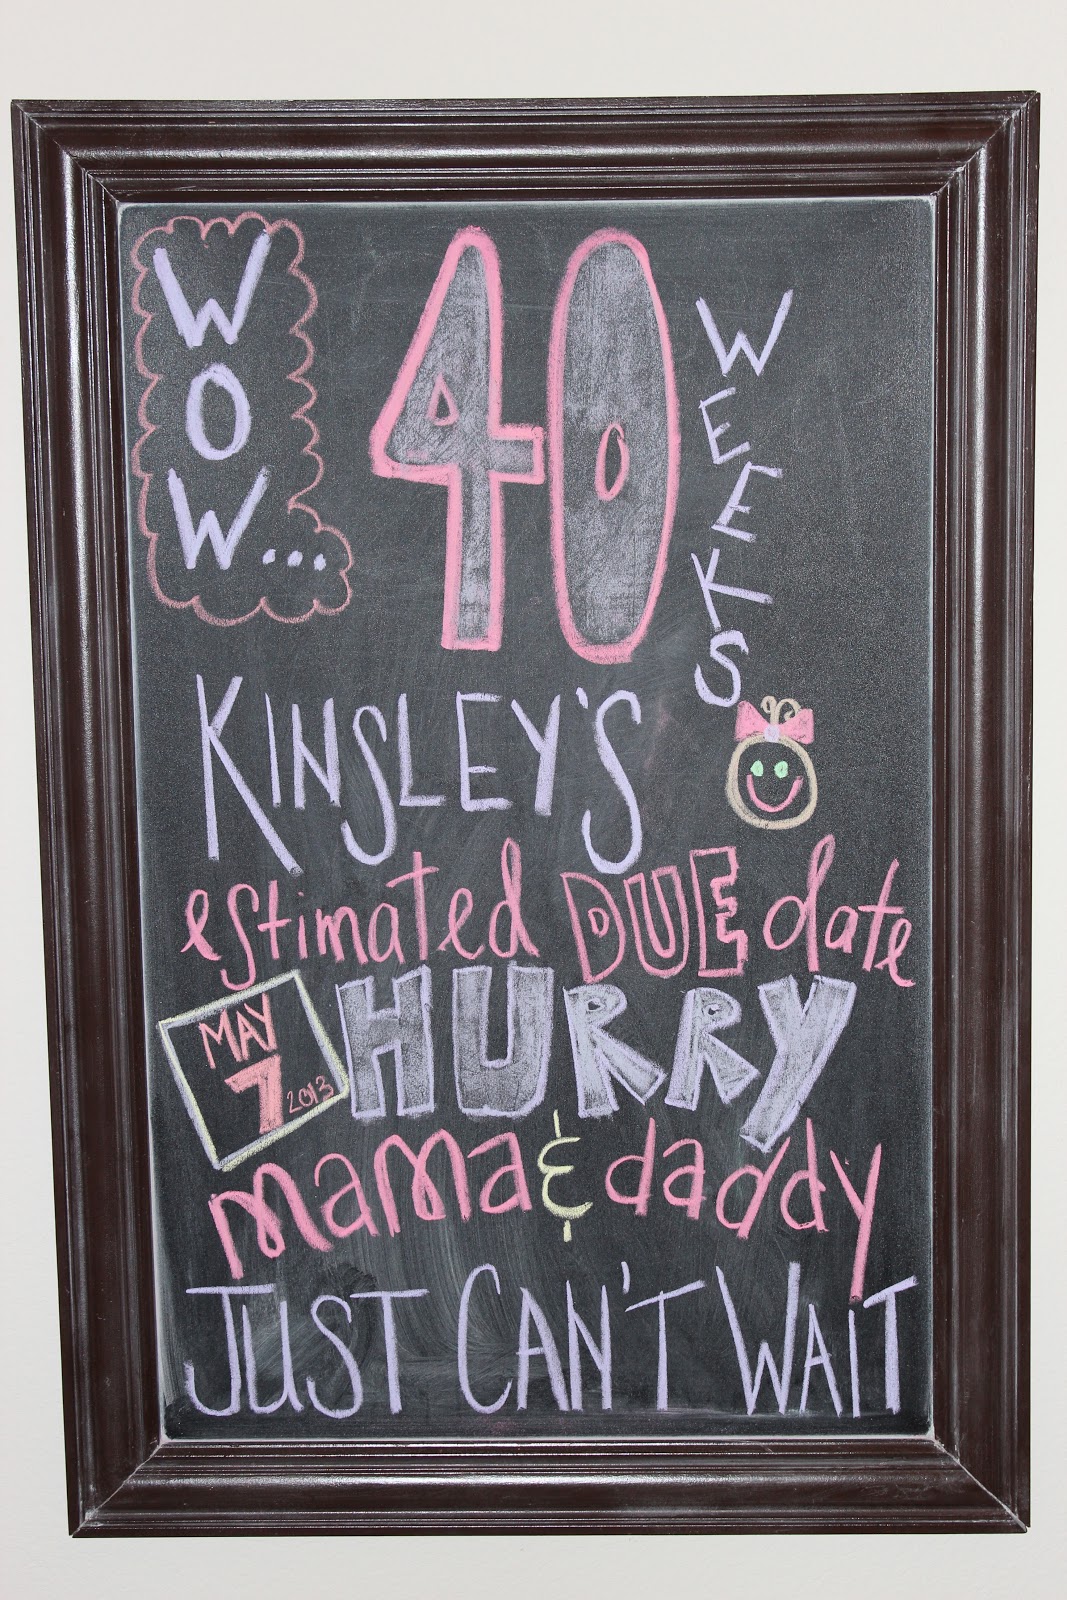 WOW...
40
WEEKS
KINSLEY'S
estimated DUE date
MAY
7
2013
HURRY
mama & daddy
JUST CAN'T WAIT